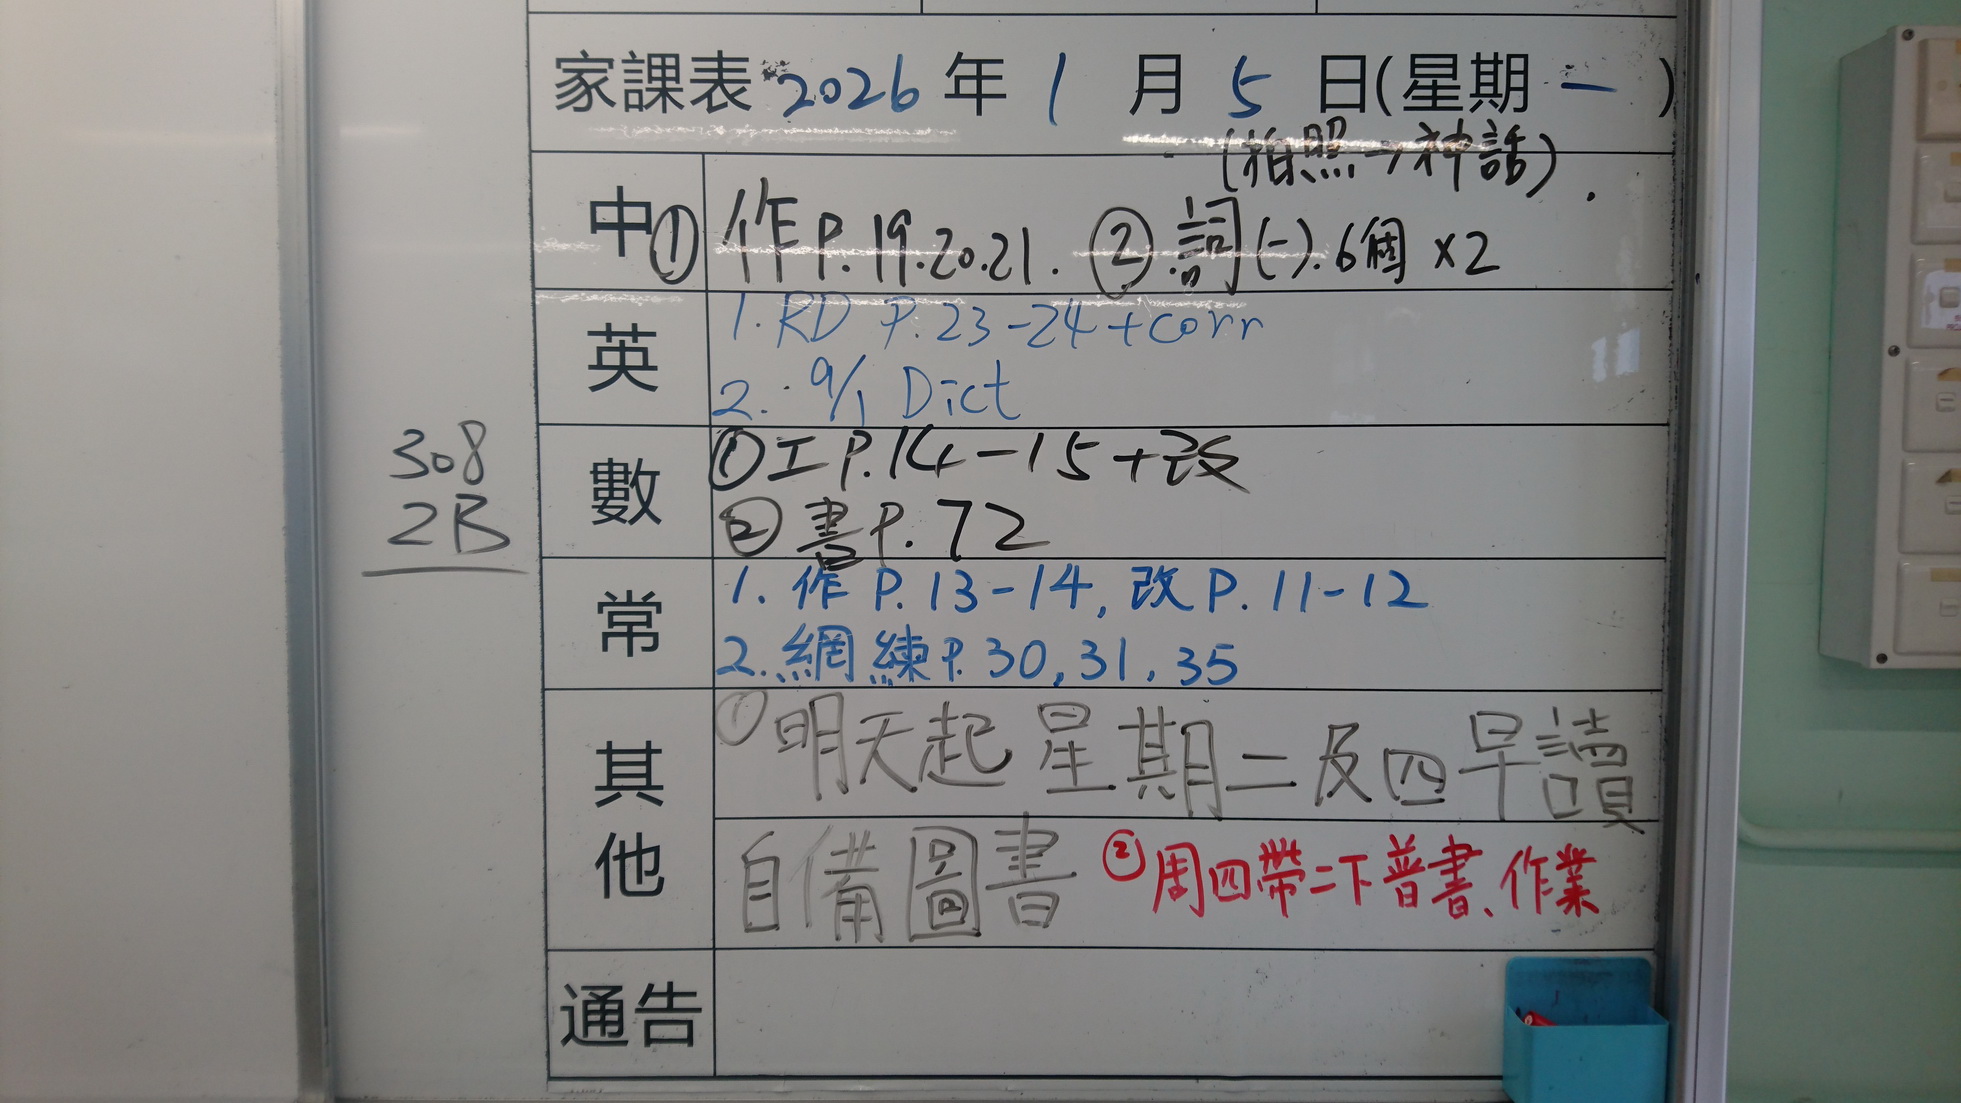 家課表 2026 年 1 月 5 日(星期 一 )
(拍照→神話).
中 ① 作P.19.20.21. ②.詞(一).6個 x2
英 1. RD P.23-24+corr
2. 9/1 Dict
數 ①工P.14-15+改
②書P.72
常 1. 作P.13-14, 改P.11-12
2. 網練P.30,31,35
其他 ①明天起星期二及四早讀
自備圖書 ②周四帶二下普書、作業
通告
308
2B